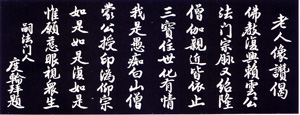 老人像讚偈
佛教復興賴雲公
法門宗脉又紹隆
僧伽親近皆依止
三寶住世化有情
我是愚痴白山僧
蒙公授印溈仰宗
如是如是復如是
惟願慈眼視眾生
嗣法門人
度輪拜題